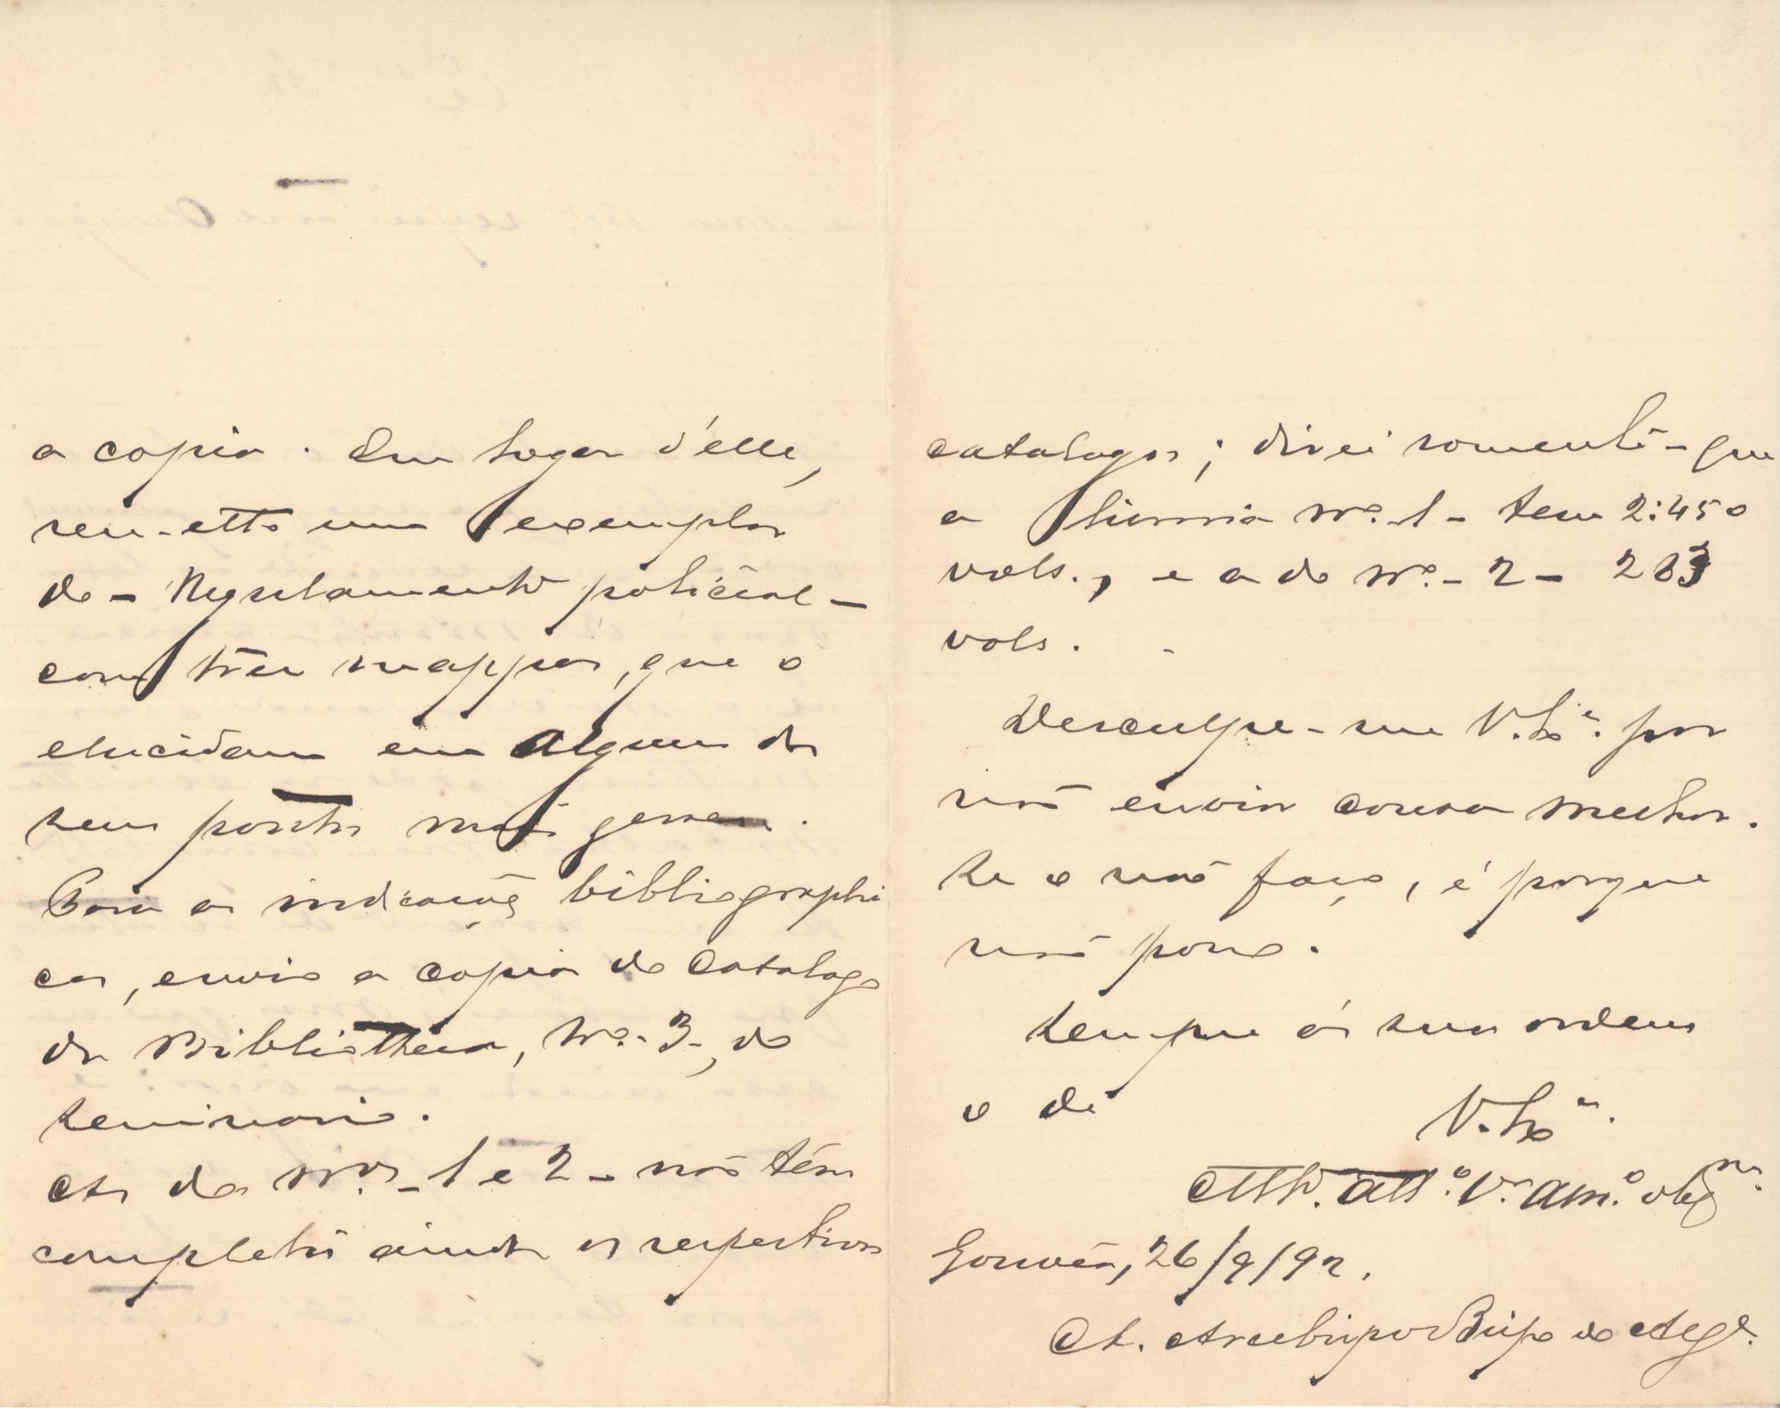 a copia. Em logar d'elle,
remetto um exemplar
do - Regulamento policial -
com três mappas, que o
elucidam em alguns dos
seus pontos mais geraes.
Para as indicações bibliographi
cas, envio a copia do Catalogo
da Bibliotheca, Nº. 3, do
seminario.
As dos Nos. - 1 e 2 - não têm
completos ainda os respectivos
catalogos; direi somente - que
a livraria Nº. 1 - tem 2:450
vols., e a do Nº. - 2 -
vols.
Desculpe-me V. Exª. por
não enviar cousa melhor.
Se o não faço, é porque
não posso.
Sempre ás suas ordens
o de
V. Exª.
attº. Vor. amº. obgmo.
Gouvêa, 26/9/92.
A. Arcebispo Bispo do Alge.